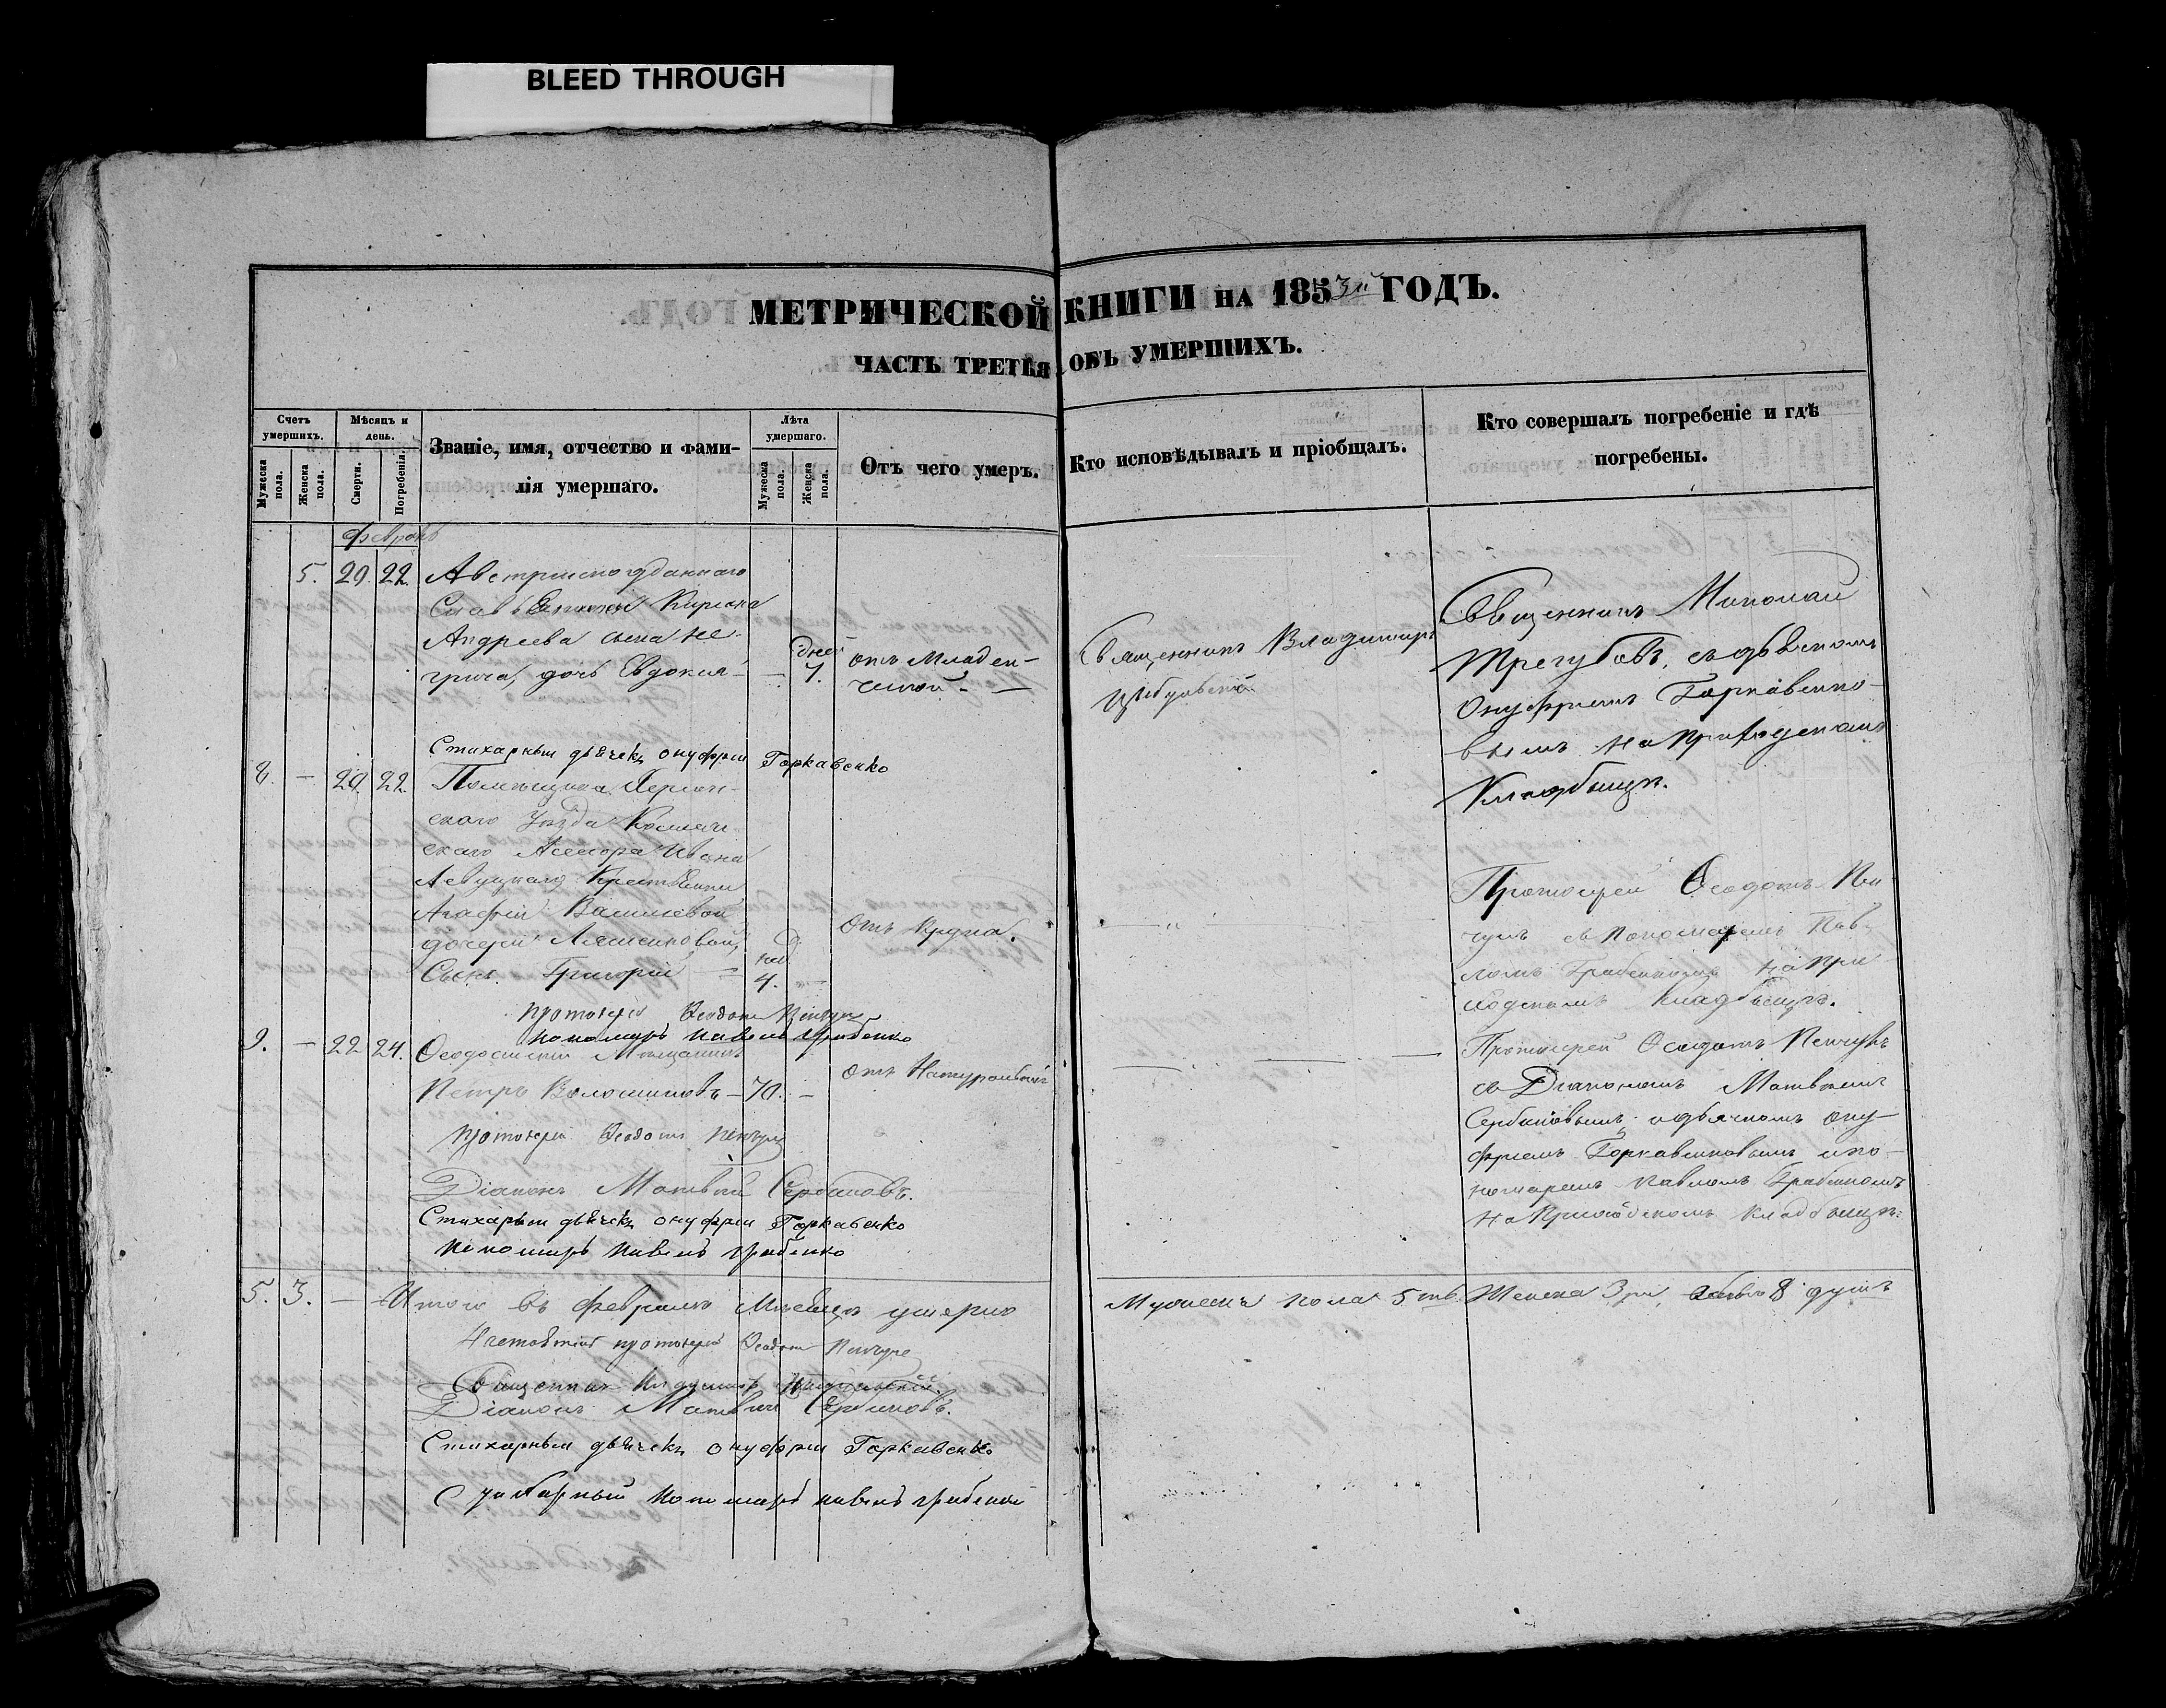 BLEED THROUGH
МЕТРИЧЕСКОЙ КНИГИ НА 1853й ГОДЪ.
ЧАСТЬ ТРЕТЬЯ ОБЪ УМЕРШИХЪ.
Счетъ умершихъ.
Мужеска пола.
Женска пола.
Мѣсяцъ и день.
Смерти.
Погребенія.
Званіе, имя, отчество и фами-
лія умершаго.
Лѣта умершаго.
Мужеска пола.
Женска пола.
Отъ чего умеръ.
Кто исповѣдывалъ и пріобщалъ.
Кто совершалъ погребеніе и гдѣ
погребены.
5. 20. 22.
Кирила
Андреева сына Не-
грича, дочь Евдокія
дней
7.
отъ младен-
ческой
Священникъ Владимиръ
Священникъ Николай
Трегубовъ, съ дьячкомъ
Онуфріемъ Горкавенко-
вымъ на приходскомъ
Кладбищѣ.
Стихарный дьячекъ Онуфрій Горкавенко
8. — 20. 22.
Помѣщика Херсон-
скаго Уѣзда Коллеж-
скаго Асессора Ивана
Агафіи Васильевой
дочери
Сынъ Григорій
4.
отъ Крупа.
Протоіерей Ѳеодотъ
съ пономаремъ Пав-
ломъ Грабенкомъ на при-
ходскомъ Кладбищѣ.
Протоіерей Ѳеодотъ
Пономарь Павелъ Грабенко
9. — 22 24.
Ѳеодосійскій Мѣщанинъ
Петръ Волошиновъ — 70. —
отъ Натуральной
Протоіерей Ѳеодотъ
съ Діакономъ Матвѣемъ
Сербиновымъ, и дьячкомъ Ону-
фріемъ Горкавенковымъ и по-
номаремъ Павломъ Грабенкомъ
на приходскомъ кладбищѣ.
Протоіерей Ѳеодотъ
Діаконъ Матвѣй Сербиновъ.
Стихарный дьячекъ Онуфрій Горкавенко
Пономарь Павелъ Грабенко
5. 3. — Итого въ Февралѣ Мѣсяцѣ умерло
Мужеска пола 5ть Женска 3ри, обоего 8 душъ
протоіерей Ѳеодотъ
Священникъ Владимиръ
Діаконъ Матвѣй Сербиновъ.
Стихарный дьячекъ Онуфрій Горкавенко
Стихарный Пономарь Павелъ Грабенко